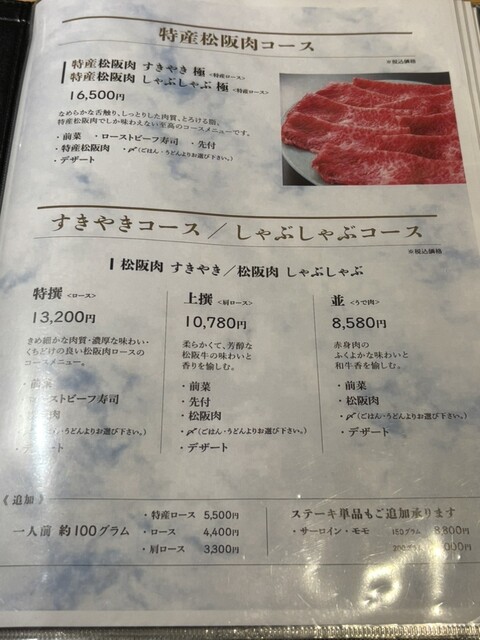 特産松阪肉コース
※税込価格
特産松阪肉 すきやき 極 <特産ロース>
特産松阪肉 しゃぶしゃぶ 極 <特産ロース>
16,500円
なめらかな舌触り、しっとりした肉質、とろける脂。
特産松阪肉でしか味わえない至高のコースメニューです。
・前菜 ・ローストビーフ寿司 ・先付
・特産松阪肉 ・〆(ごはん・うどんよりお選び下さい。)
・デザート
すきやきコース/しゃぶしゃぶコース
※税込価格
松阪肉 すきやき/松阪肉 しゃぶしゃぶ
特撰 <ロース>
13,200円
きめ細かな肉質・濃厚な味わい・
くちどけの良い松阪肉ロースの
コースメニュー。
・前菜
ローストビーフ寿司
肉
(ごはん・うどんよりお選び下さい。)
デザート
上撰 <肩ロース>
10,780円
柔らかくて、芳醇な
松阪牛の味わいと
香りを愉しむ。
・前菜
・先付
・松阪肉
・〆(ごはん・うどんよりお選び下さい。)
・デザート
並 <うで肉>
8,580円
赤身肉の
ふくよかな味わいと
和牛香を愉しむ。
・前菜
・松阪肉
・〆(ごはん・うどんよりお選び下さい。)
・デザート
《追加》
一人前 約100グラム
・特産ロース 5,500円
・ロース 4,400円
・肩ロース 3,300円
ステーキ単品もご追加承ります
・サーロイン・モモ 150グラム 8,800円
200グラム 000円